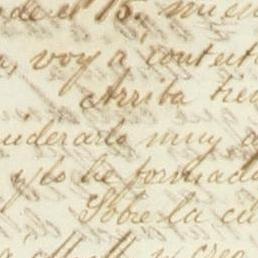 de el 15, mi
, voy a contest
Arriba
iderarlo muy
y lo he formad
Sobre la cu
y creo